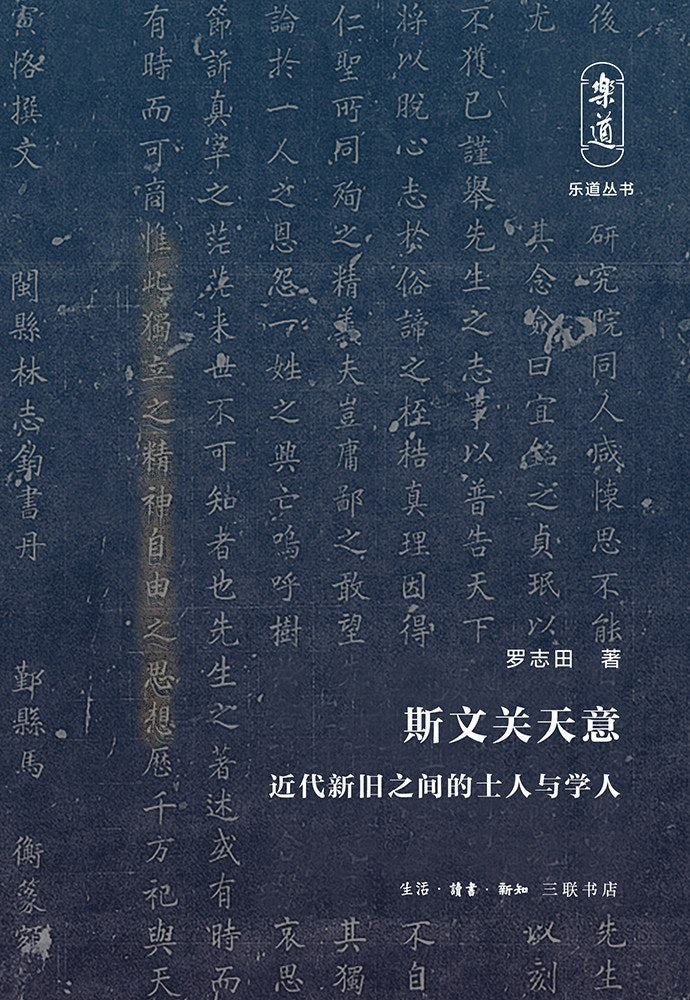 樂道
乐道丛书
罗志田 著
斯文关天意
近代新旧之间的士人与学人
生活·讀書·新知 三联书店
後 研究院同人咸懷思不能 先生
尤 其念僉曰宜銘之貞珉以 以刻
不獲已謹舉先生之志事以普告天下
將以脫心志於俗諦之桎梏真理因得 不自
仁聖所同殉之精義夫豈庸鄙之敢望 其獨
論於一人之恩怨一姓之興亡嗚呼樹 哀思
節訴真宰之茫茫来世不可知者也先生之著述或有時而
有時而可商惟此獨立之精神自由之思想歷千万祀與天
寅恪撰文 閩縣林志鈞書丹 鄞縣馬 衡篆額